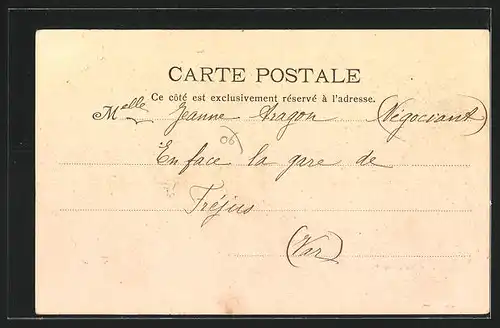 CARTE POSTALE
Ce côté est exclusivement réservé à l'adresse.
Melle Jeanne Aragon (Négociant)
06
En face la gare de
Fréjus
(Var)